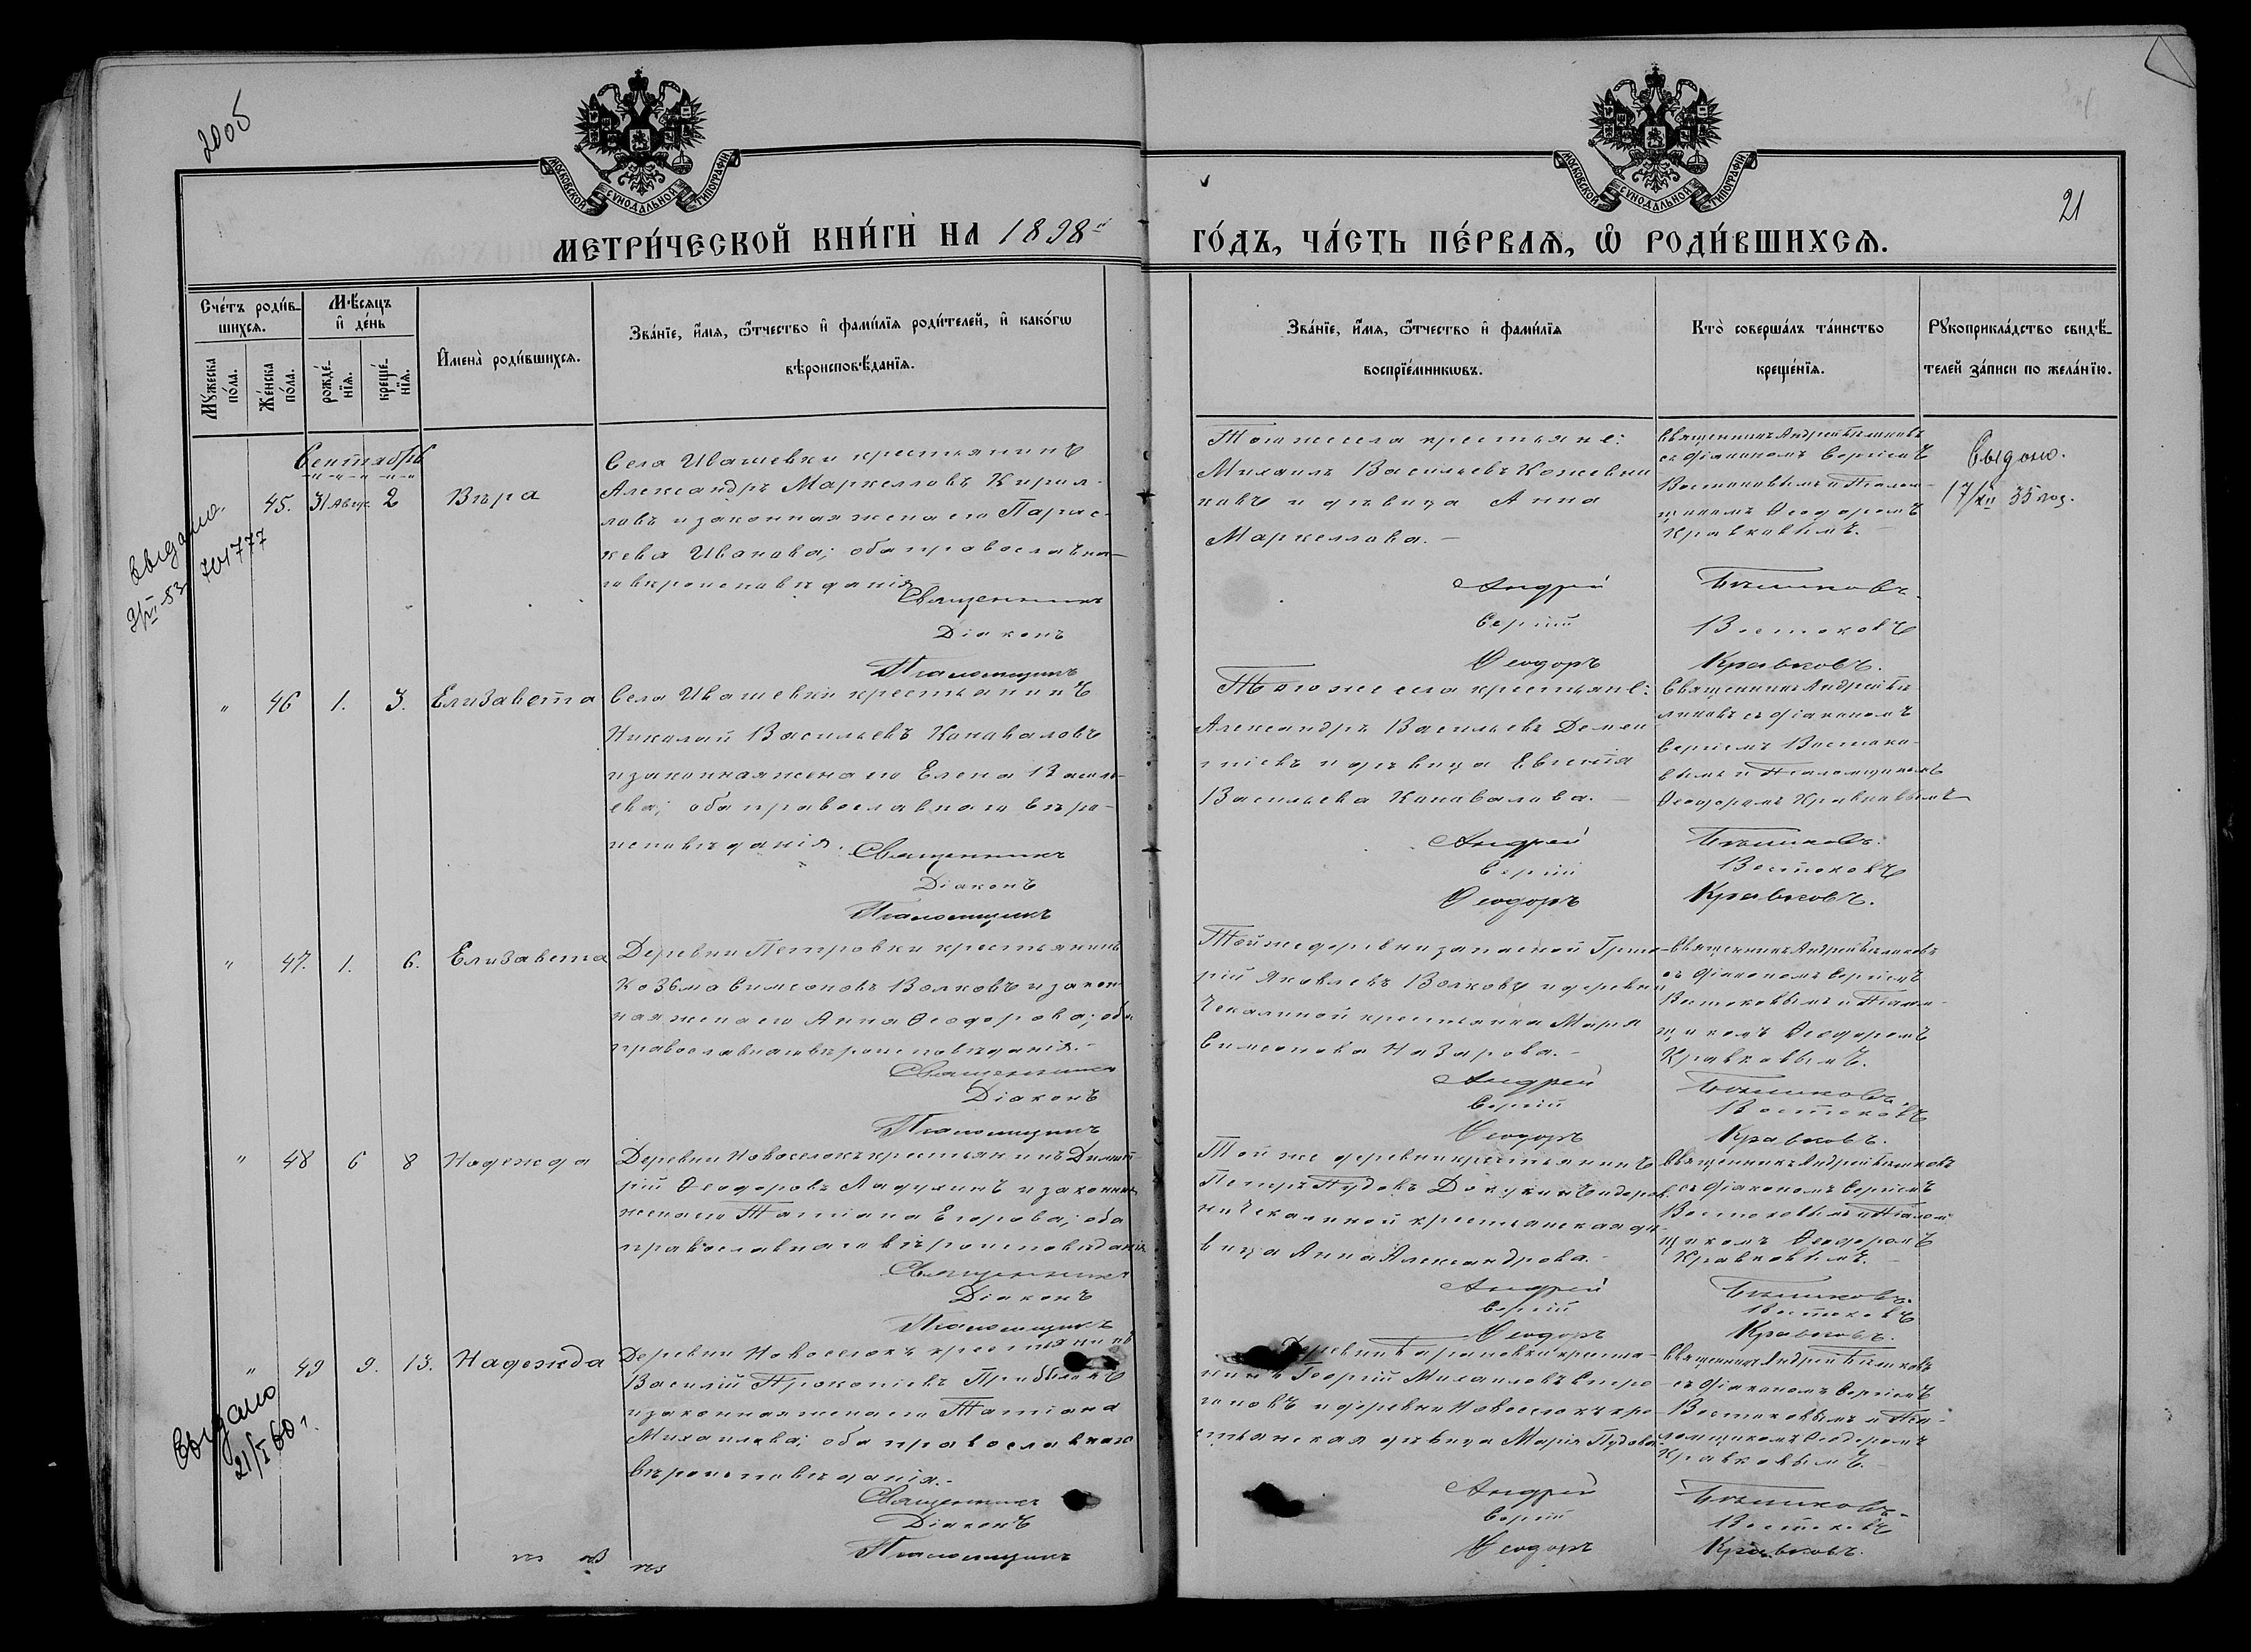 20об
21
МОСКОВСКОЙ СУНОДАЛЬНОЙ ТИПОГРАФІИ
МОСКОВСКОЙ СУНОДАЛЬНОЙ ТИПОГРАФІИ
МЕТРИ́ЧЕСКОЙ КНИ́ГИ НА 1898 й ГО́ДЪ, ЧА́СТЬ ПЕ́РВАЯ, Ѡ РОДИ́ВШИХСЯ.
Сче́тъ роди́в-
шихся.
Мѣ́сяцъ
и де́нь
Му́жеска
по́ла.
Же́нска
по́ла.
рожде́-
нїя.
креще́-
нїя.
Имена̀ роди́вшихся.
Зва́нїе, и́мя, ѻ́тчество и фами́лїя роди́телей, и како́гѡ
вѣроисповѣ́данїя.
Зва́нїе, и́мя, ѻ́тчество и фами́лїя
воспрїе́мникѡвъ.
Кто̀ соверша́лъ та́инство
креще́нїя.
Рꙋкоприкла́дство свидѣ́-
телей за́писи по жела́нїю.
Сентябрь
45. 31 Авгус. 2 Вѣра
Села Ивашевки крестьянинъ
Александръ Маркелловъ Кирил-
ловъ и законная жена его Парас-
кева Иванова; оба православна-
го вѣроисповѣданія
Священникъ
Діаконъ
Псаломщикъ
Того же села крестьяне:
Михаилъ Васильевъ Кожевни
ковъ и дѣвица Анна
Маркеллова. -
Андрей
Сергій
Ѳеодоръ
Священникъ Андрей
съ діакономъ Сергіемъ
Востоковымъ и Псалом-
щикомъ Ѳеодоромъ
Кравковымъ. -
Востоковъ
Кравковъ.
Выдано.
17/XII 35 год.
Выдано.
701777
" 46 1. 3. Елизавета
Села Ивашевки крестьянинъ
Николай Васильевъ Коноваловъ
и законная жена его Елена Василь-
ева; оба православнаго вѣро-
исповѣданія.
Священникъ
Діаконъ
Псаломщикъ
Того же села крестьяне:
Александръ Васильевъ Демен
тіевъ и дѣвица Евгенія
Васильева Коновалова. -
Андрей
Сергій
Ѳеодоръ
Священникъ Андрей
съ діакономъ
Сергіемъ Востоко-
вымъ и Псаломщикомъ
Ѳеодоромъ Кравковымъ
Востоковъ
Кравковъ.
" 47. 1. 6. Елизавета
Деревни Петровки крестьянинъ
Козьма Симеоновъ Волковъ и закон
ная жена его Анна Ѳеодорова; оба
православнаго вѣроисповѣданія. -
Священникъ
Діаконъ
Псаломщикъ
Той же деревни запасной Григо-
рій Яковлевъ Волковъ и деревни
Чекалиной крестьянка Марія
Симеонова Назарова. -
Андрей
Сергій
Ѳеодоръ
Священникъ Андрей
съ діакономъ Сергіемъ
Востоковымъ и Псалом-
щикомъ Ѳеодоромъ
Кравковымъ.
Востоковъ
Кравковъ.
" 48 6 8 Надежда
Деревни Новоселокъ крестьянинъ Димит-
рій Ѳеодоровъ Ладухинъ и законная
жена его Татіана Егорова; оба
православнаго вѣроисповѣданія
Священникъ
Діаконъ
Псаломщикъ
Той же деревни крестьянинъ
Петръ Пудовъ Докукинъ и дерев-
ни Чекалиной крестьянская дѣ-
вица Анна Александрова. -
Андрей
Сергій
Ѳеодоръ
Священникъ Андрей
съ діакономъ Сергіемъ
Востоковымъ и Псалом
щикомъ Ѳеодоромъ
Кравковымъ. -
Востоковъ
Кравковъ.
" 49 9. 13. Надежда
Деревни Новоселокъ крестьянинъ
Василій Прокопіевъ
и законная жена его Татіана
Михайлова; оба православнаго
вѣроисповѣданія. -
Священникъ
Діаконъ
Псаломщикъ
Деревни крестья-
нинъ Георгій Михаиловъ
и деревни Новоселокъ кре-
стьянская дѣвица Марія Пудова.
Андрей
Сергій
Ѳеодоръ
Священникъ Андрей
съ діакономъ Сергіемъ
Востоковымъ и Пса-
ломщикомъ Ѳеодоромъ
Кравковымъ. -
Востоковъ
Кравковъ.
Выдано
21/I 60 г.